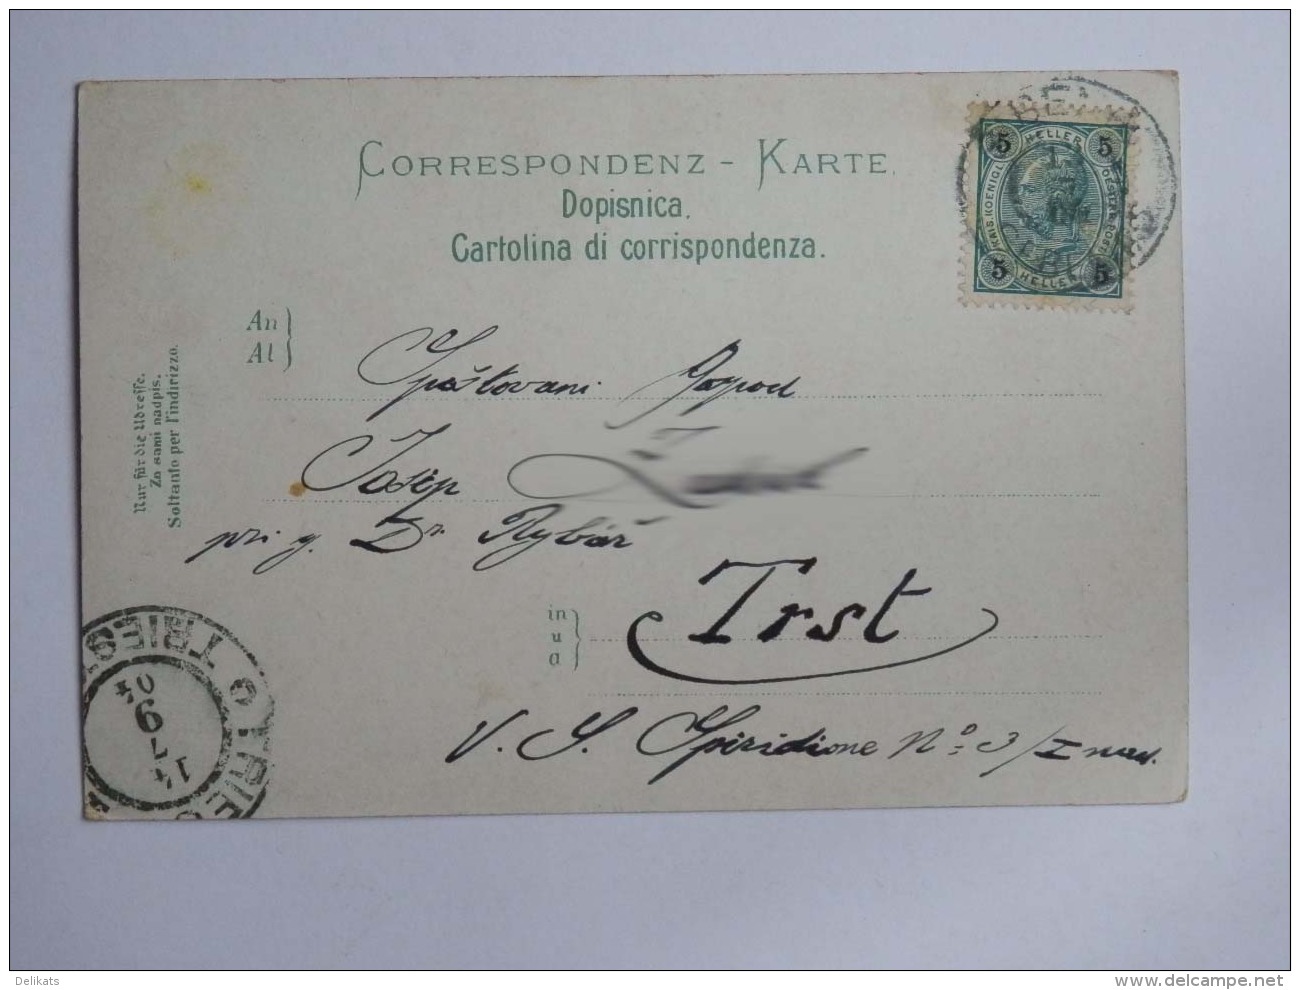 CORRESPONDENZ - KARTE.
Dopisnica.
Cartolina di corrispondenza.
5 HELLER 5
KAIS. KOENIGL. OESTERR. POST
5 HELLER 5
An
Al
Nur für die Adresse.
Za sami nadpis.
Soltanto per l'indirizzo.
Spoštovani Gospod
Josip
pri g. Dr. Rybář
in
u
a
Trst
V. S. Spiridione No 3/I nad.
TRIEST
TRIES
14
7
9
04
Delikats
www.delcampe.net